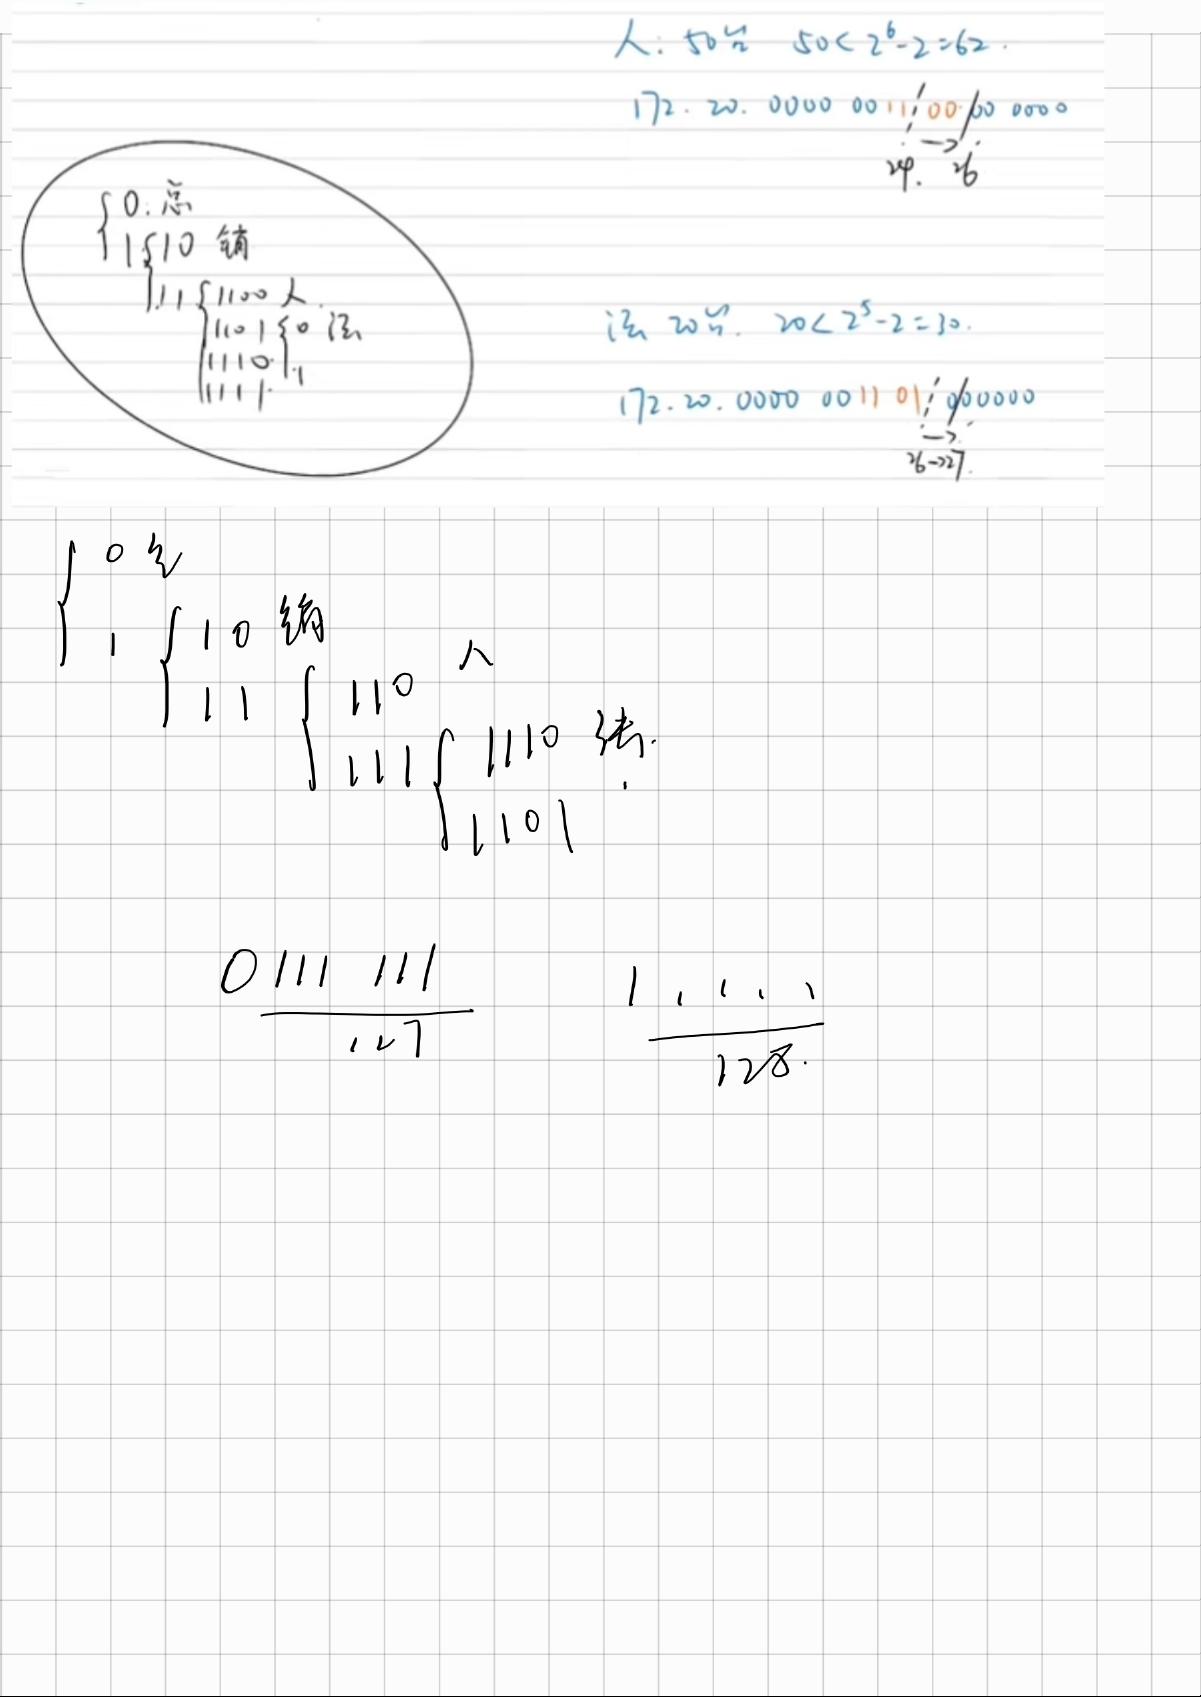 人: 50台 50<2⁶-2=62.
172. 20. 0000 0011 00 00 0000
24. → 26
0. 总
1 10 销
11 1100 人
1101 0 法
1110 1
1111.
法 20台. 20<2⁵-2=30.
172. 20. 0000 0011 01 000000
→
26→27.
0
1 10 销
11 110 人
111 1110 法.
1101
0111 111
127
1
128.